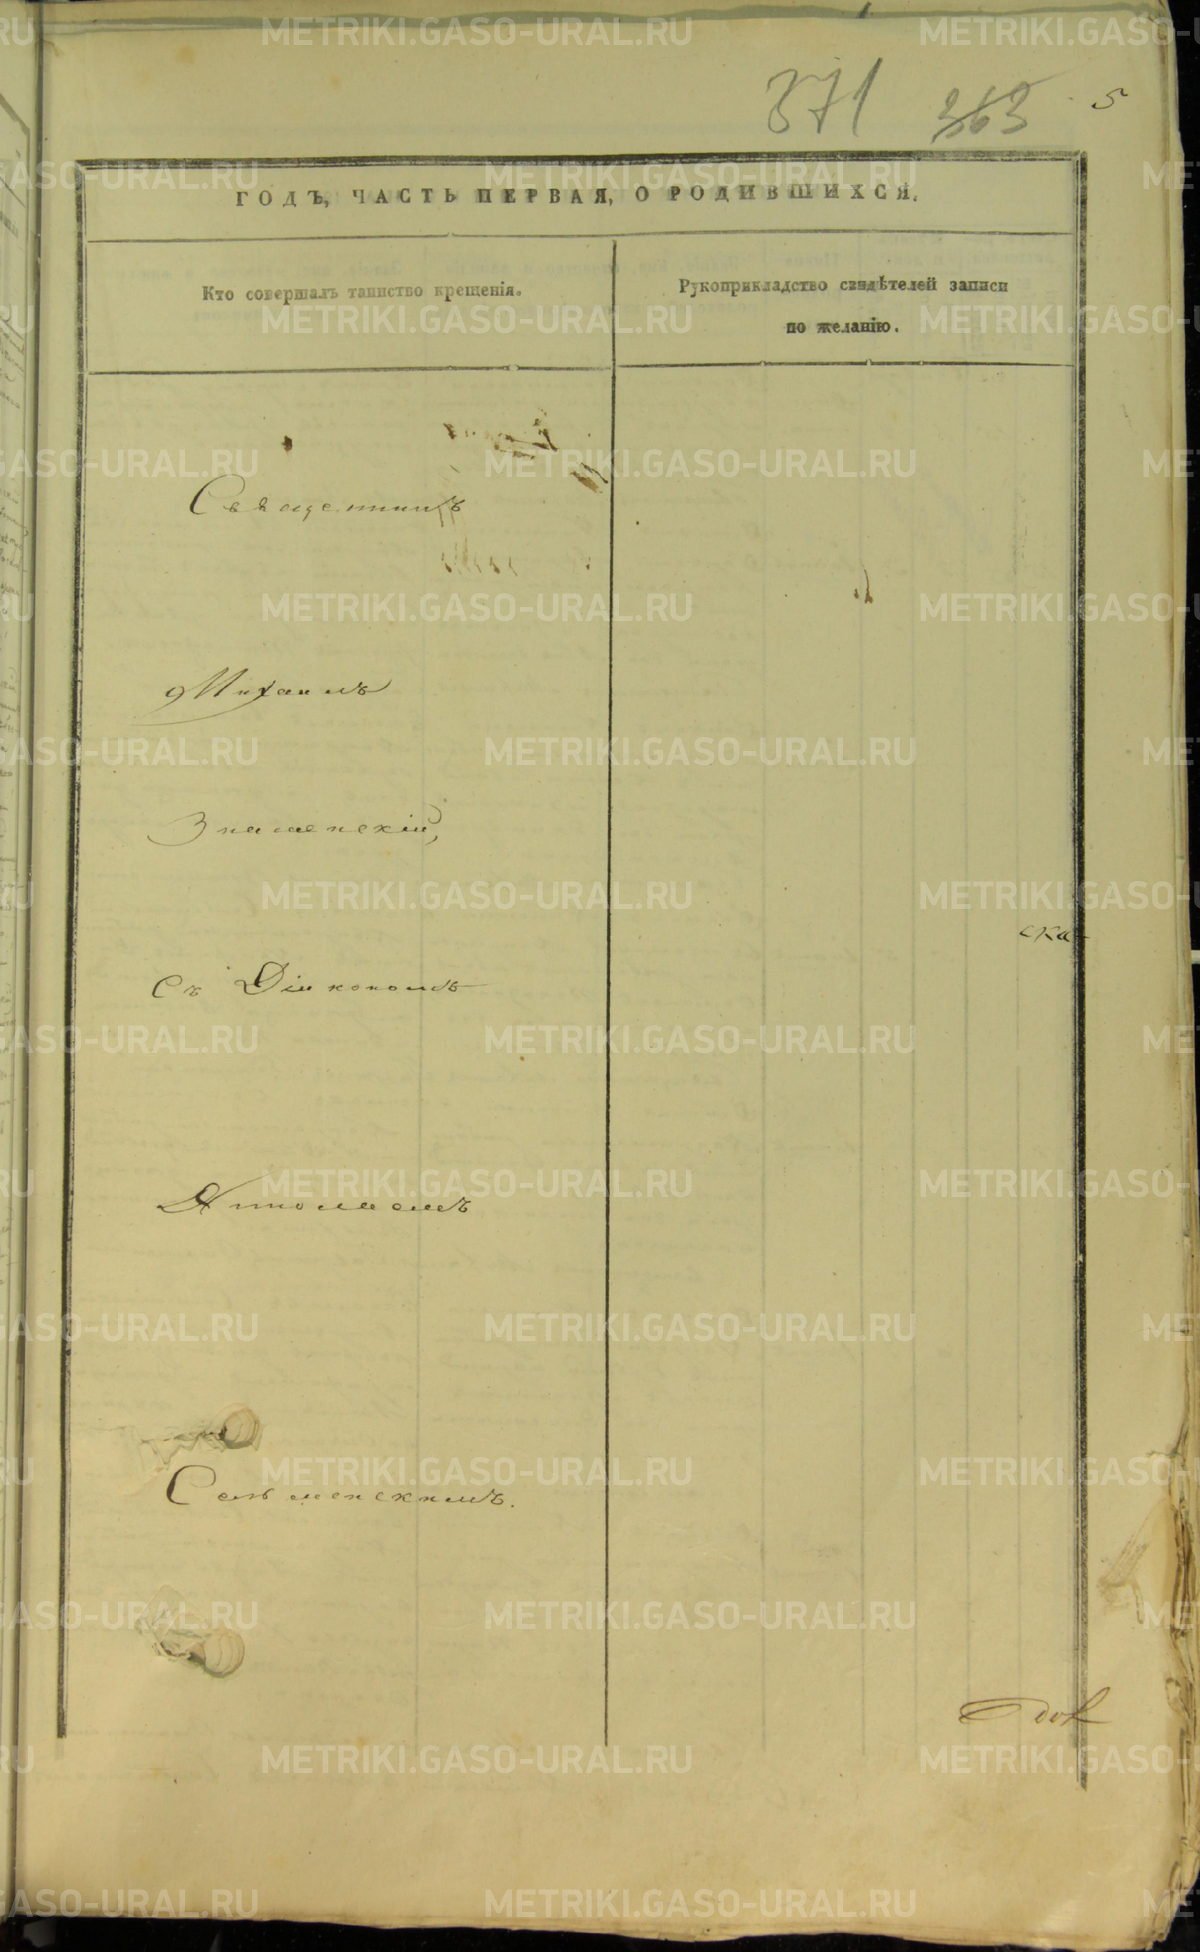 371 363 5
ГОДЪ, ЧАСТЬ ПЕРВАЯ, О РОДИВШИХСЯ.
Кто совершалъ таинство крещенія.
Рукоприкладство свидѣтелей записи
по желанію.
Священникъ
Михаилъ
Знаменскій,
ска
Съ Діакономъ
Сельменскимъ.
METRIKI.GASO-URAL.RU